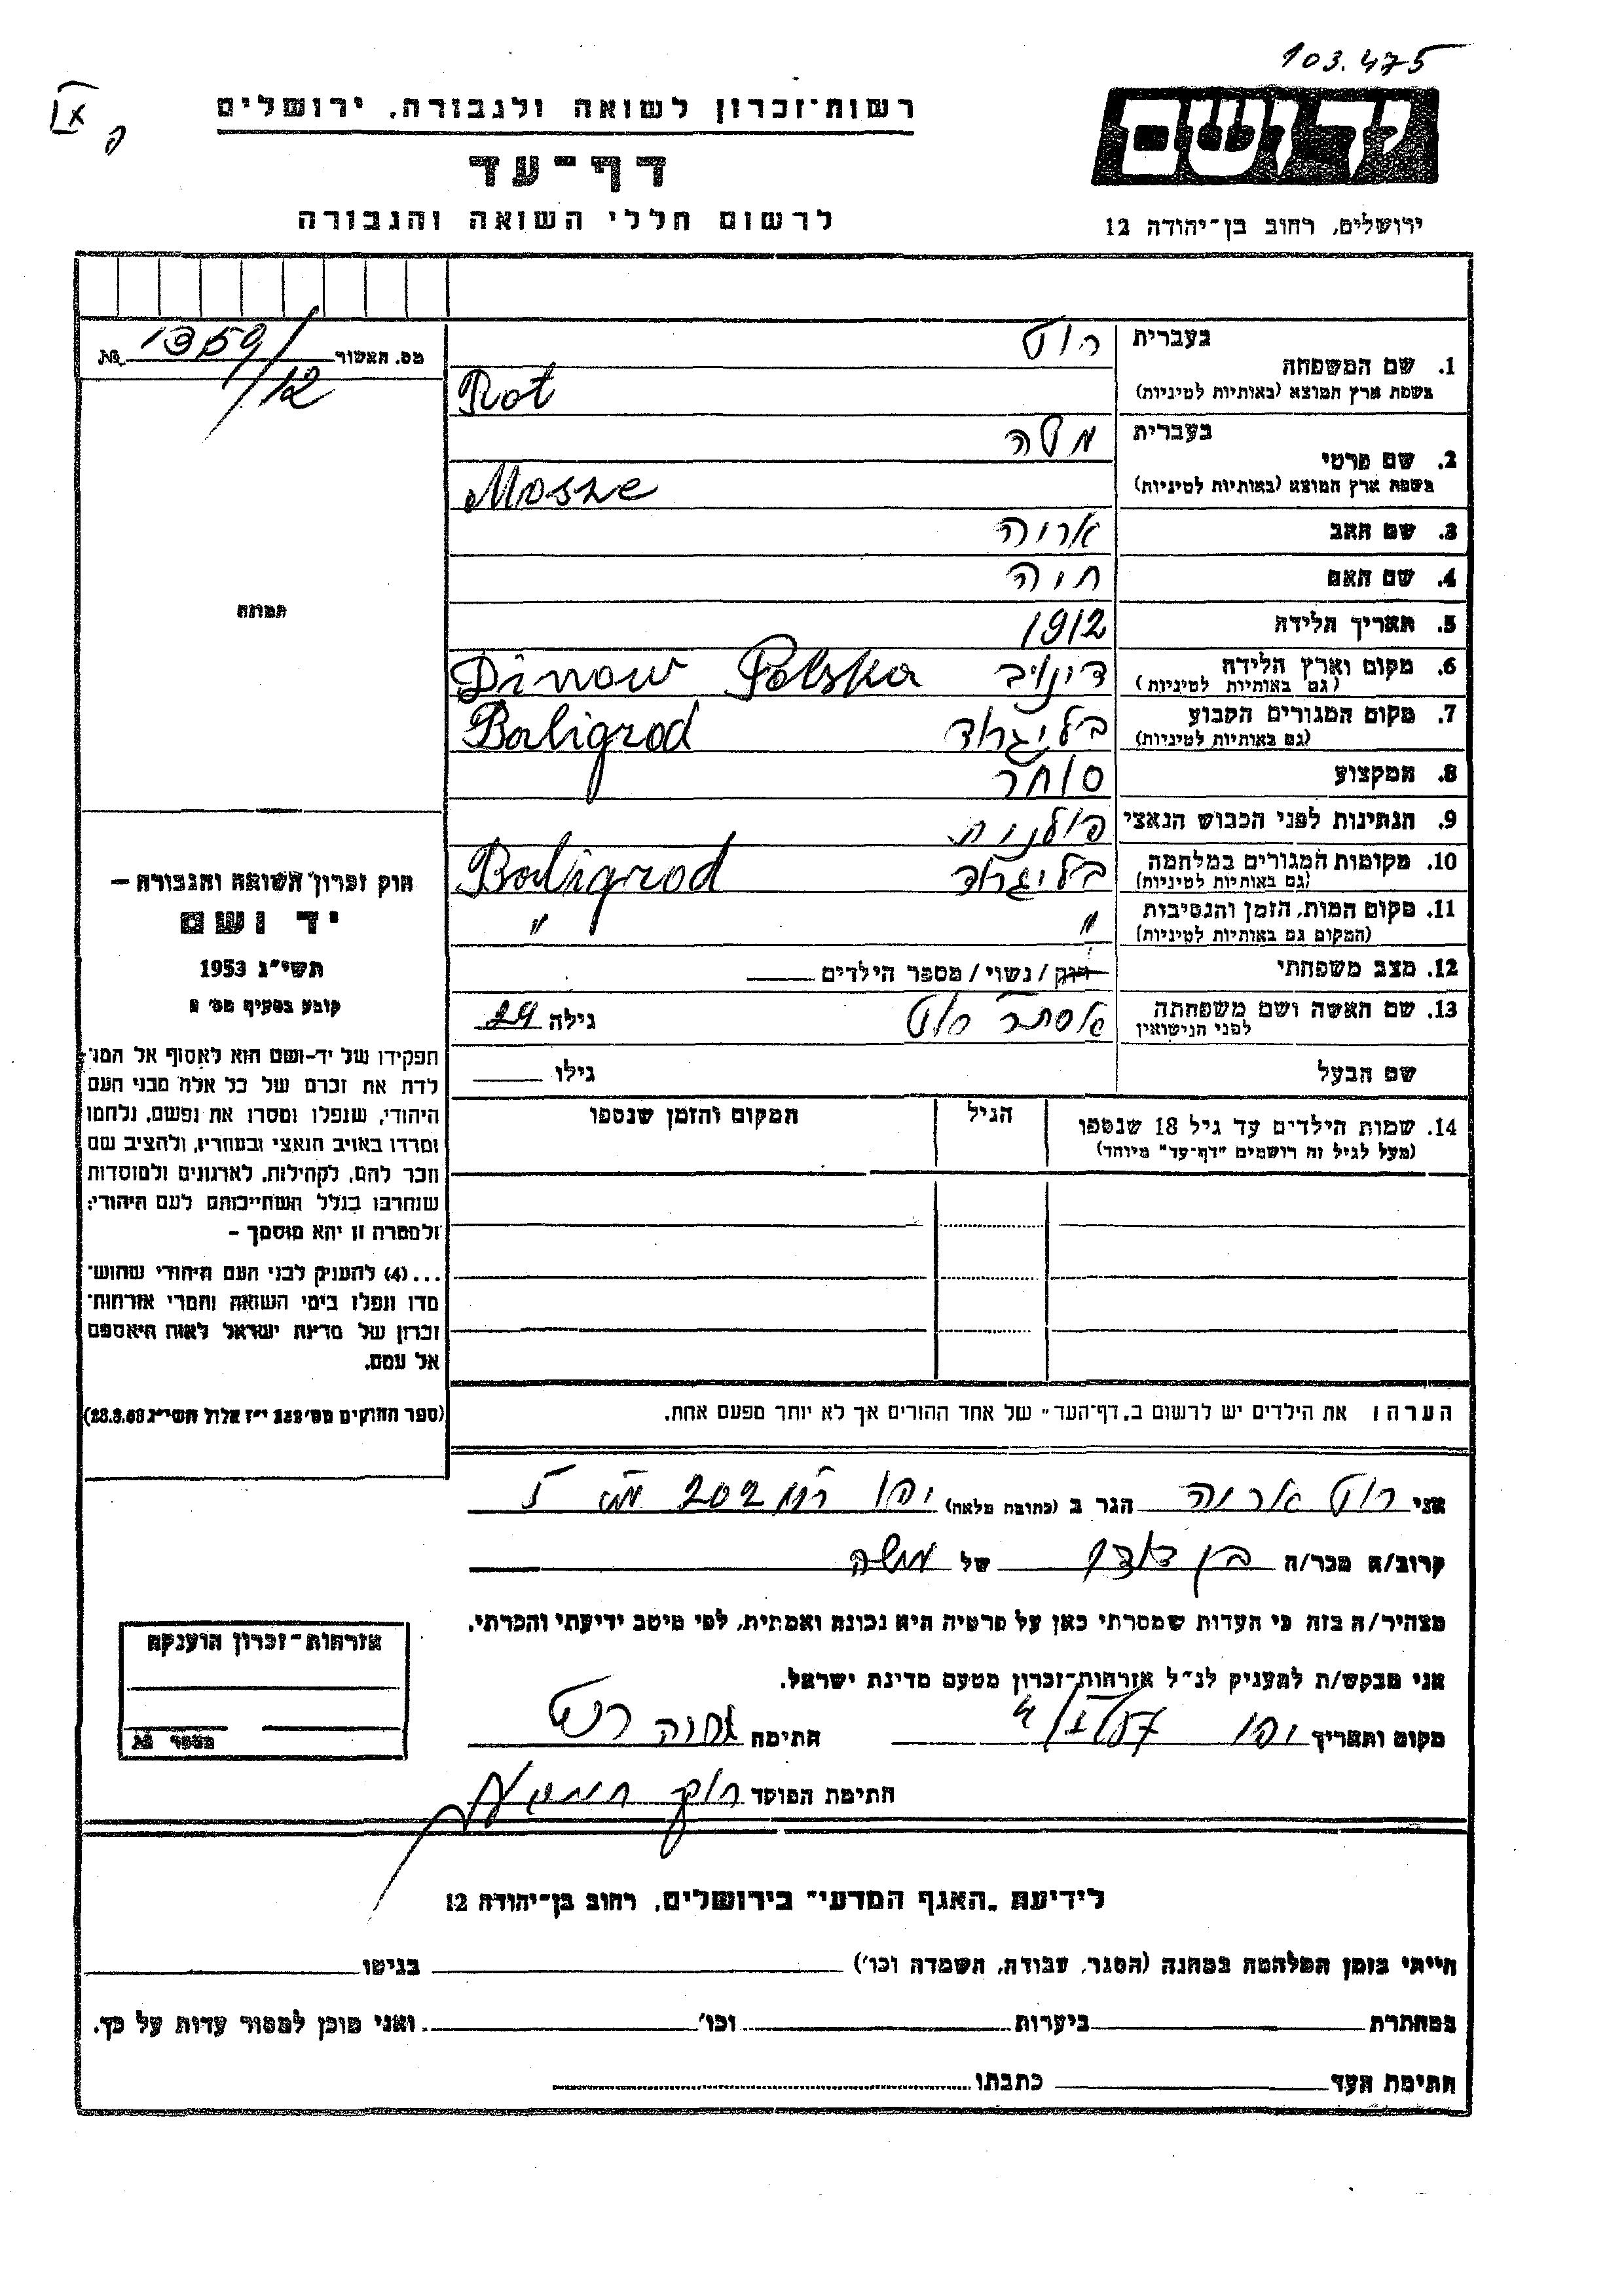 103.475
IX
רשות־זכרון לשואה ולגבורה, ירושלים
דף־עד
לרשום חללי השואה והגבורה
יד ושם
ירושלים, רחוב בן־יהודה 12
מס. האשור 1359/12 №
תמונה
חוק זכרון השואה והגבורה —
יד ושם
תשי״ג 1953
קובע בסעיף מס׳ 2
תפקידו של יד־ושם הוא לאסוף אל המו־
לדת את זכרם של כל אלה מבני העם
היהודי, שנפלו ומסרו את נפשם, נלחמו
ומרדו באויב הנאצי ובעוזריו, ולהציב שם
וזכר להם, לקהילות, לארגונים ולמוסדות
שנחרבו בגלל השתייכותם לעם היהודי;
ולמטרה זו יהא מוסמך —
...(4) להעניק לבני העם היהודי שהוש־
מדו ונפלו בימי השואה והמרי אזרחות־
זכרון של מדינת ישראל לאות היאספם
אל עמם.
(ספר החוקים מס׳ 132 י״ז אלול תשי״ג 28.8.53)
1. שם המשפחה
בעברית רוט
בשפת ארץ המוצא (באותיות לטיניות) Rot
2. שם פרטי
בעברית משה
בשפת ארץ המוצא (באותיות לטיניות) Mosze
3. שם האב אריה
4. שם האם חיה
5. תאריך הלידה 1912
6. מקום וארץ הלידה דינויב Dinow Polska
(גם באותיות לטיניות)
7. מקום המגורים הקבוע בליגרוד Baligrod
(גם באותיות לטיניות)
8. המקצוע סוחר
9. הנתינות לפני הכבוש הנאצי פולנית
10. מקומות המגורים במלחמה בליגרוד Baligrod
(גם באותיות לטיניות)
11. מקום המות, הזמן והנסיבות " "
(המקום גם באותיות לטיניות)
12. מצב משפחתי רווק / נשוי / מספר הילדים
13. שם האשה ושם משפחתה אסתר רוט גילה 29
לפני הנישואין
שם הבעל גילו
14. שמות הילדים עד גיל 18 שנספו הגיל המקום והזמן שנספו
(מעל לגיל זה רושמים "דף־עד" מיוחד)
הערה: את הילדים יש לרשום ב„דף־העד״ של אחד ההורים אך לא יותר מפעם אחת.
אני רוט אריה הגר ב (כתובת מלאה) יפו 202 מס 5
קרוב/ה מכר/ה בן דוד של משה
מצהיר/ה בזה כי העדות שמסרתי כאן על פרטיה היא נכונה ואמתית, לפי מיטב ידיעתי והכרתי.
אני מבקש/ת להעניק לנ״ל אזרחות־זכרון מטעם מדינת ישראל.
מקום ותאריך יפו 4/I/57 חתימה אריה רוט
חתימת הפוקד
אזרחות־זכרון הוענקה
מספר №
לידיעת „האגף המדעי״ בירושלים, רחוב בן־יהודה 12
הייתי בזמן המלחמה במחנה (הסגר, עבודה, השמדה וכו׳) בגיטו
במחתרת ביערות וכו׳ ואני מוכן למסור עדות על כך.
חתימת העד כתבתו